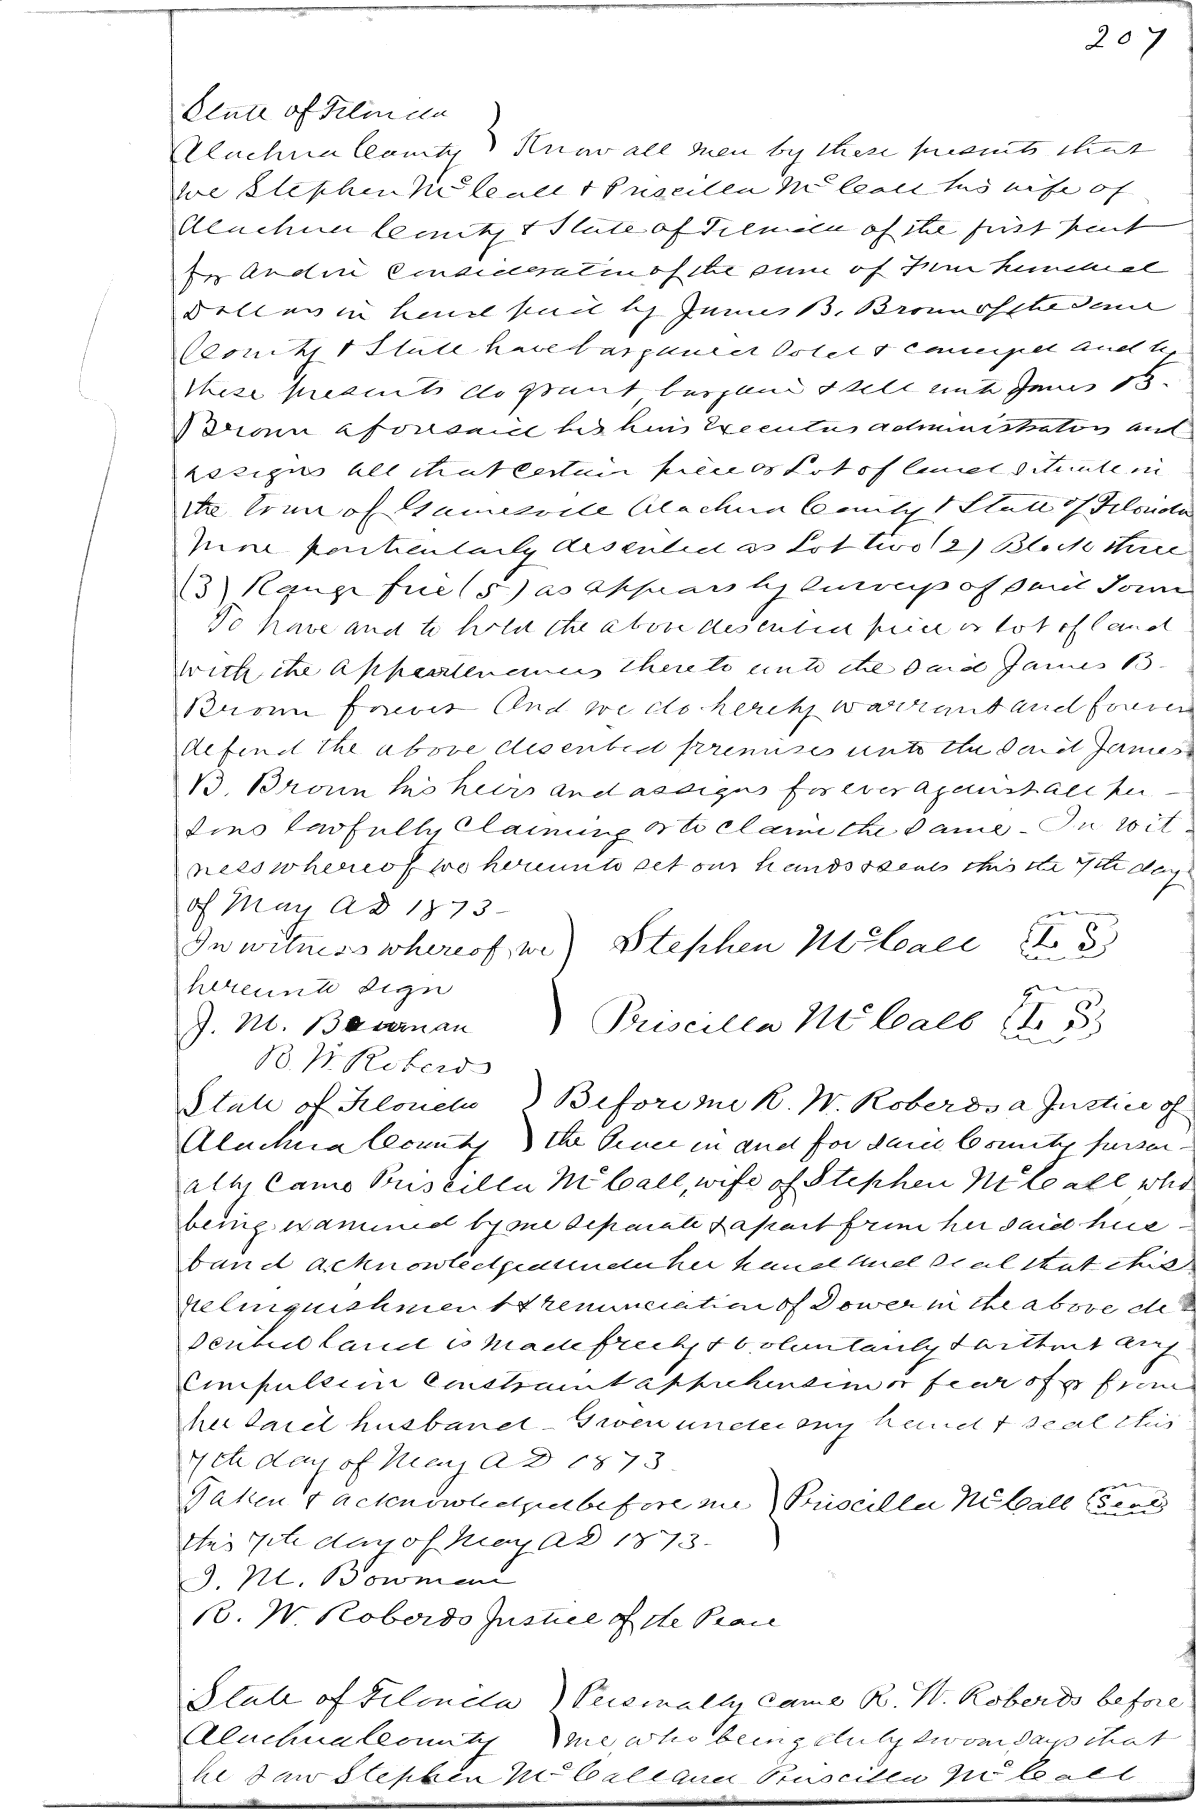 207
State of Florida
Alachua County } Know all men by these presents that
we Stephen McCall & Priscilla McCall his wife of
Alachua County & State of Florida of the first part
for and in consideration of the sum of Four hundred
Dollars in hand paid by James B. Brown of the same
County & State have bargained sold & conveyed and by
these presents do grant, bargain & sell unto James B.
Brown aforesaid his heirs Executors administrators and
assigns all that certain piece or Lot of land situate in
the town of Gainesville Alachua County & State of Florida
More particularly described as Lot two (2) Block three
(3) Range five (5) as appears by surveys of said Town
To have and to hold the above described piece or lot of land
with the appertenances thereto unto the said James B.
Brown forever And we do hereby warrant and forever
defend the above described premises unto the said James
B. Brown his heirs and assigns forever against all per-
sons lawfully claiming or to claim the same - In wit-
ness whereof we hereunto set our hands & seals this the 7th day
of May AD 1873-
In witness whereof we ) Stephen McCall (L S)
hereunto sign
J. M. Bowman ) Priscilla McCall (L S)
R. W. Roberds
State of Florida } Before me R. W. Roberds a Justice of
Alachua County } the Peace in and for said County person-
ally came Priscilla McCall, wife of Stephen McCall, who
being examined by me separate & apart from her said hus-
band acknowledged under her hand and seal that this
relinquishment & renunciation of Dower in the above de
scribed land is made freely & voluntarily & without any
compulsion constraint apprehension or fear of or from
her said husband - Given under my hand & seal this
7th day of May AD 1873.
Taken & acknowledged before me } Priscilla McCall (Seal)
this 7th day of May AD 1873-
J. M. Bowman
R. W. Roberds Justice of the Peace
State of Florida } Personally came R. W. Roberds before
Alachua County } me, who being duly sworn, says that
he saw Stephen McCall and Priscilla McCall